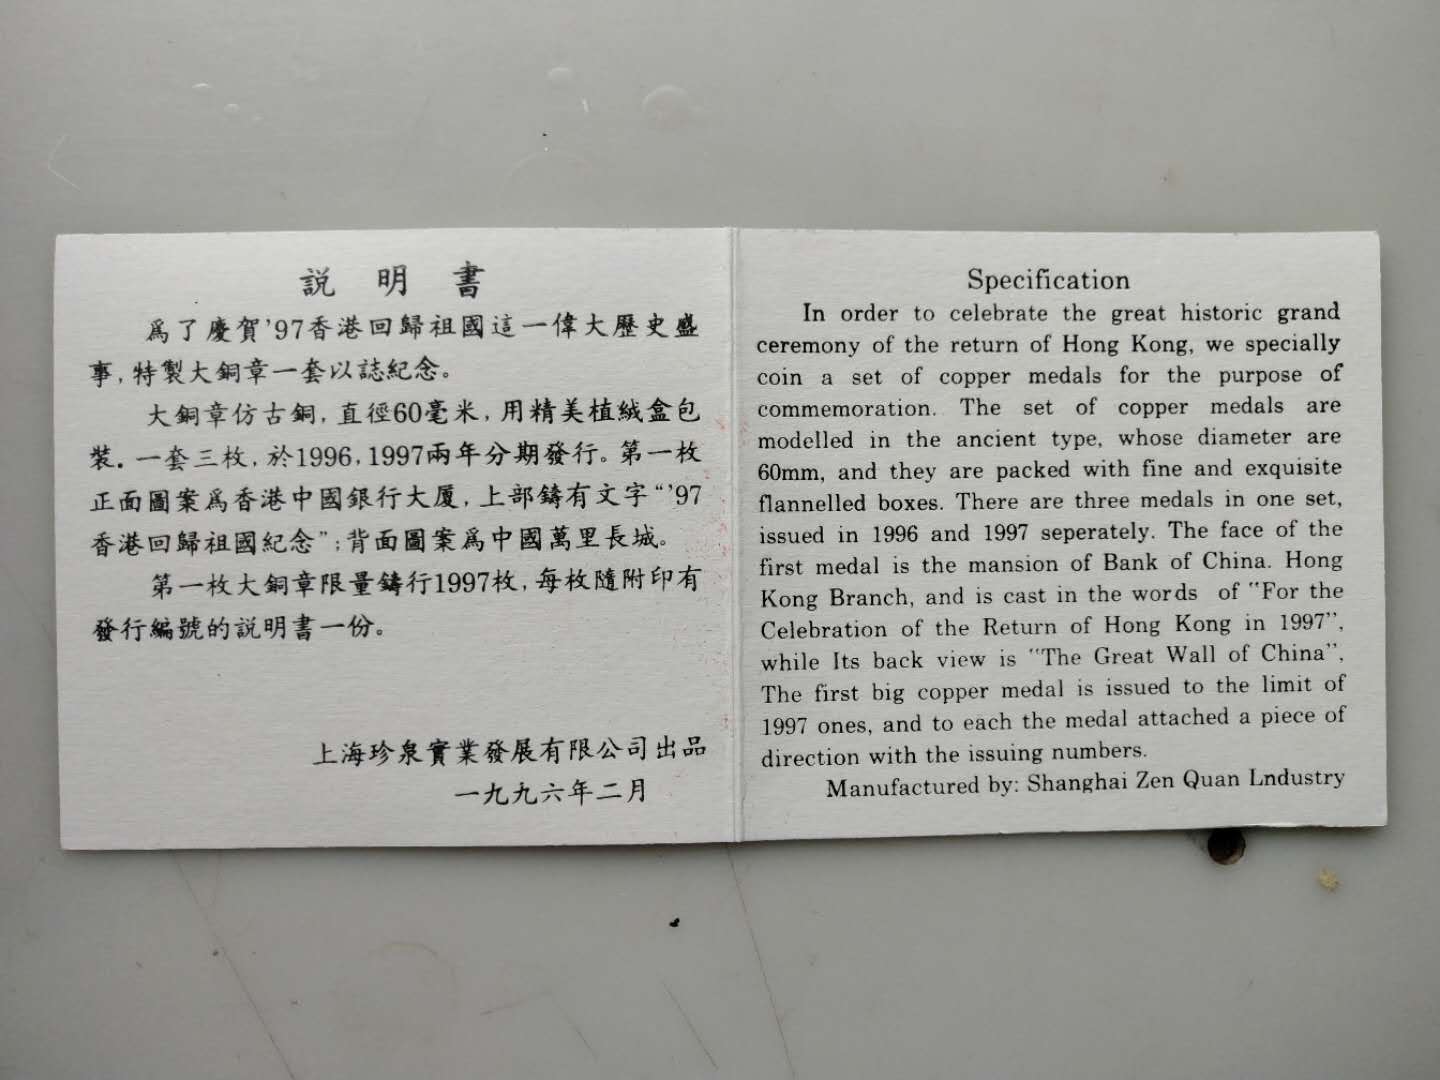 説明書
爲了慶賀’97香港回歸祖國這一偉大歷史盛
事,特製大銅章一套以誌紀念。
大銅章仿古銅,直徑60毫米,用精美植絨盒包
裝.一套三枚,於1996,1997兩年分期發行。第一枚
正面圖案爲香港中國銀行大厦,上部鑄有文字“’97
香港回歸祖國紀念”;背面圖案爲中國萬里長城。
第一枚大銅章限量鑄行1997枚,每枚隨附印有
發行編號的説明書一份。
上海珍泉實業發展有限公司出品
一九九六年二月
Specification
In order to celebrate the great historic grand
ceremony of the return of Hong Kong, we specially
coin a set of copper medals for the purpose of
commemoration. The set of copper medals are
modelled in the ancient type, whose diameter are
60mm, and they are packed with fine and exquisite
flannelled boxes. There are three medals in one set,
issued in 1996 and 1997 seperately. The face of the
first medal is the mansion of Bank of China. Hong
Kong Branch, and is cast in the words of "For the
Celebration of the Return of Hong Kong in 1997",
while Its back view is "The Great Wall of China",
The first big copper medal is issued to the limit of
1997 ones, and to each the medal attached a piece of
direction with the issuing numbers.
Manufactured by: Shanghai Zen Quan Lndustry